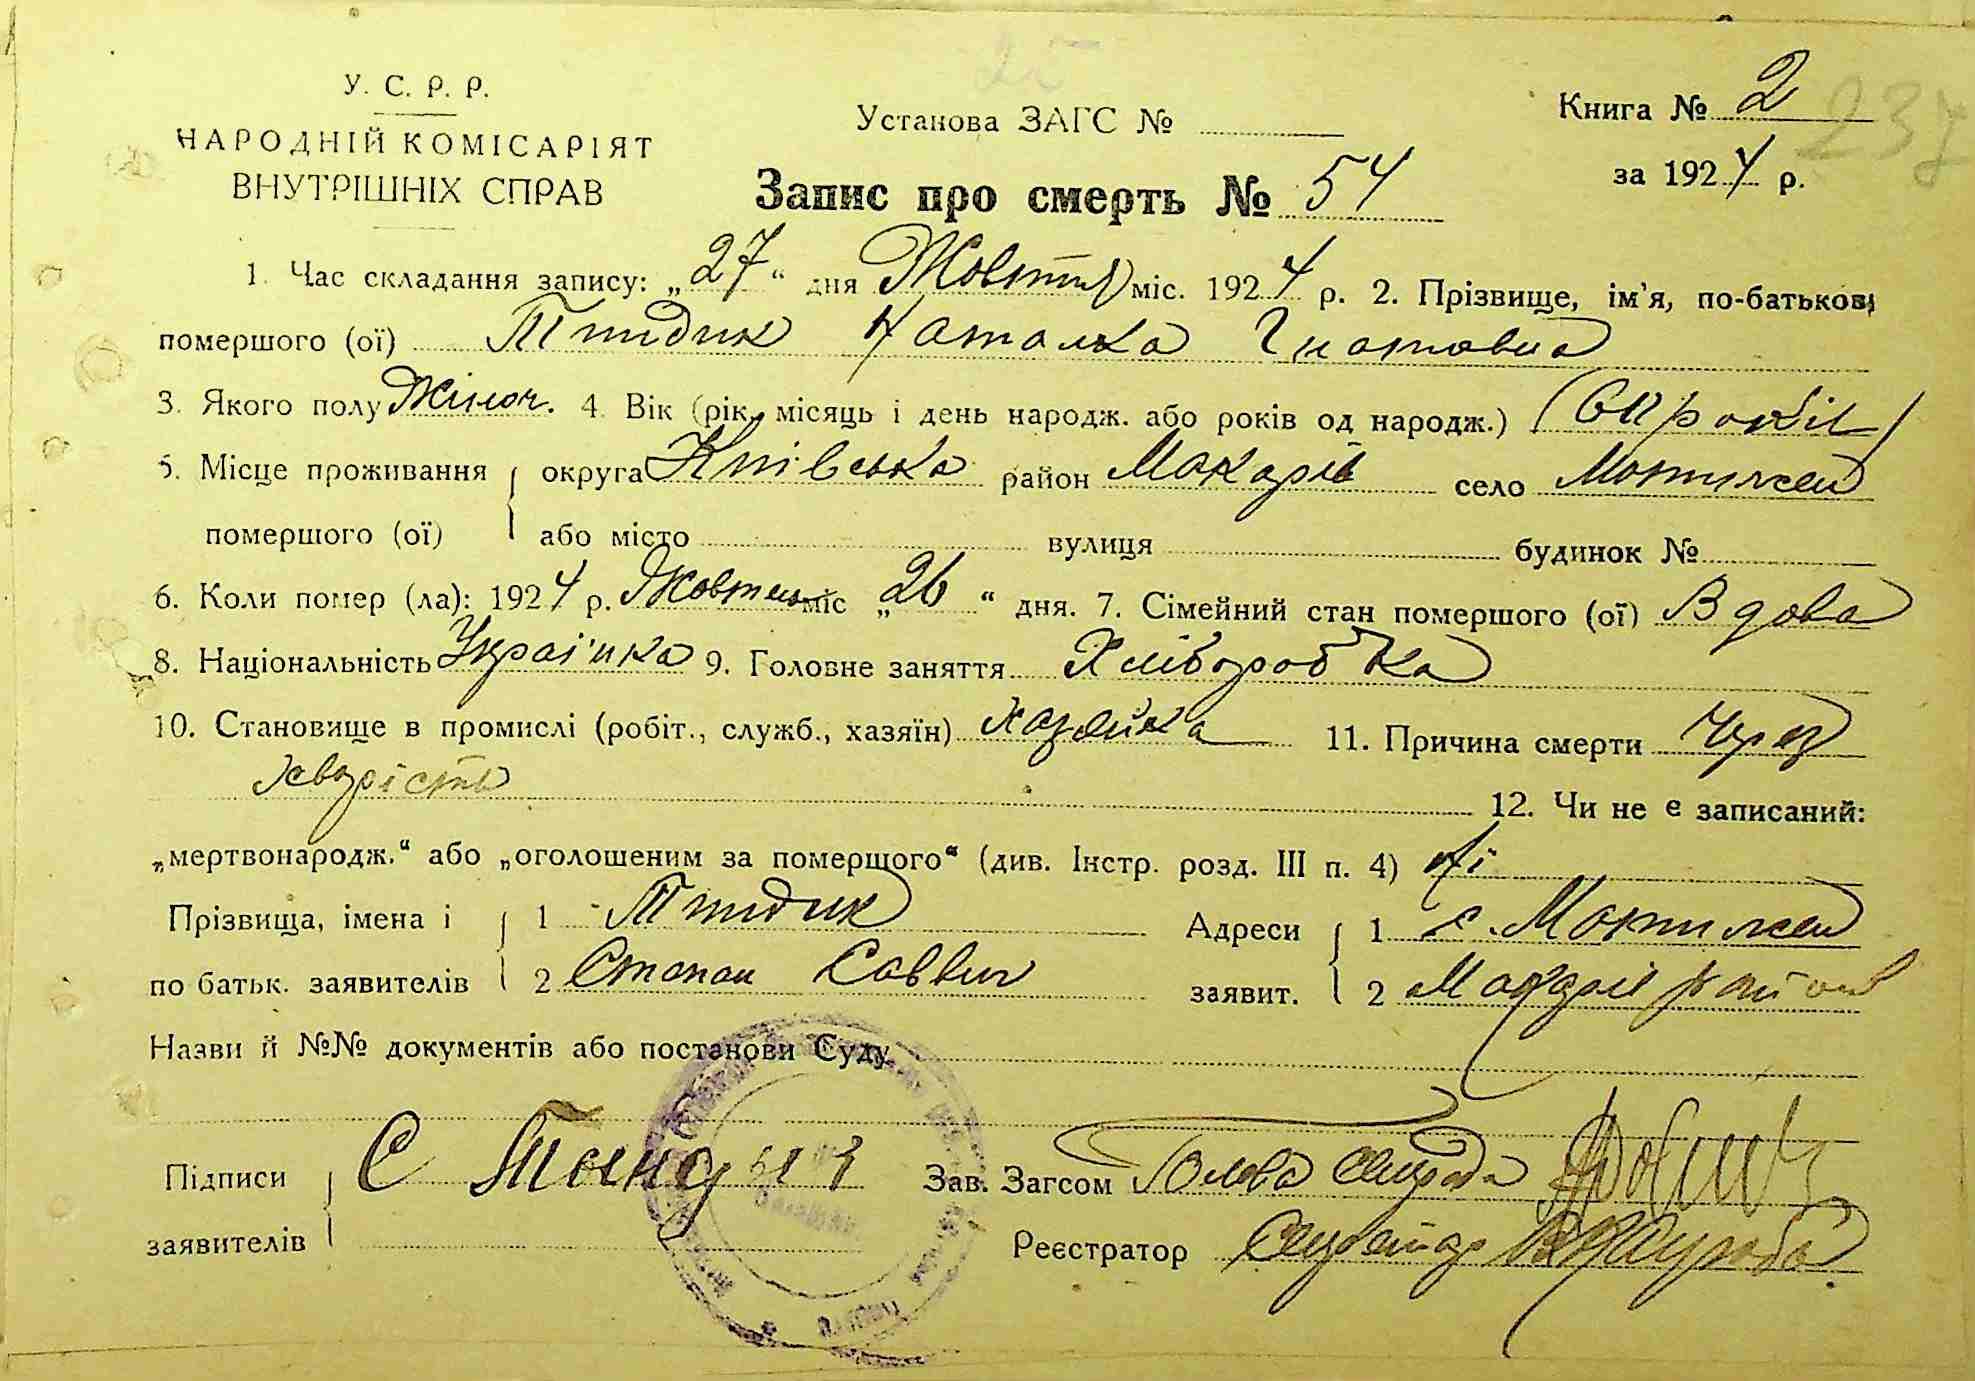 У. С. Р. Р.
НАРОДНІЙ КОМІСАРІЯТ
ВНУТРІШНІХ СПРАВ
Установа ЗАГС №
Книга № 2
237
за 1924 р.
Запис про смерть № 54
1. Час складання запису: „27“ дня Жовтня міс. 1924 р. 2. Прізвище, ім'я, по-батькові
помершого (ої) Тындик Наталка Гнатовна
3. Якого полу Жіноч. 4. Вік (рік, місяць і день народж. або років од народж.) (60 років)
5. Місце проживання округа Київська район Макарів село Мотижен
помершого (ої) або місто вулиця будинок №
6. Коли помер (ла): 1924 р. Жовтень міс „26“ дня. 7. Сімейний стан помершого (ої) Вдова
8. Національність Украінка 9. Головне заняття Хліборобка
10. Становище в промислі (робіт., служб., хазяїн) Хазяйка 11. Причина смерти Через
хворість 12. Чи не є записаний:
„мертвонародж.“ або „оголошеним за померщого“ (див. Інстр. розд. III п. 4) Ні
Прізвища, імена і 1 Тындик Адреси 1 с. Мотижен
по батьк. заявителів 2 Степан Саввич заявит. 2 Макарів район
Назви й №№ документів або постанови Суду
Підписи С Тындик Зав. Загсом Голова сільрада
заявителів Реєстратор Секретар